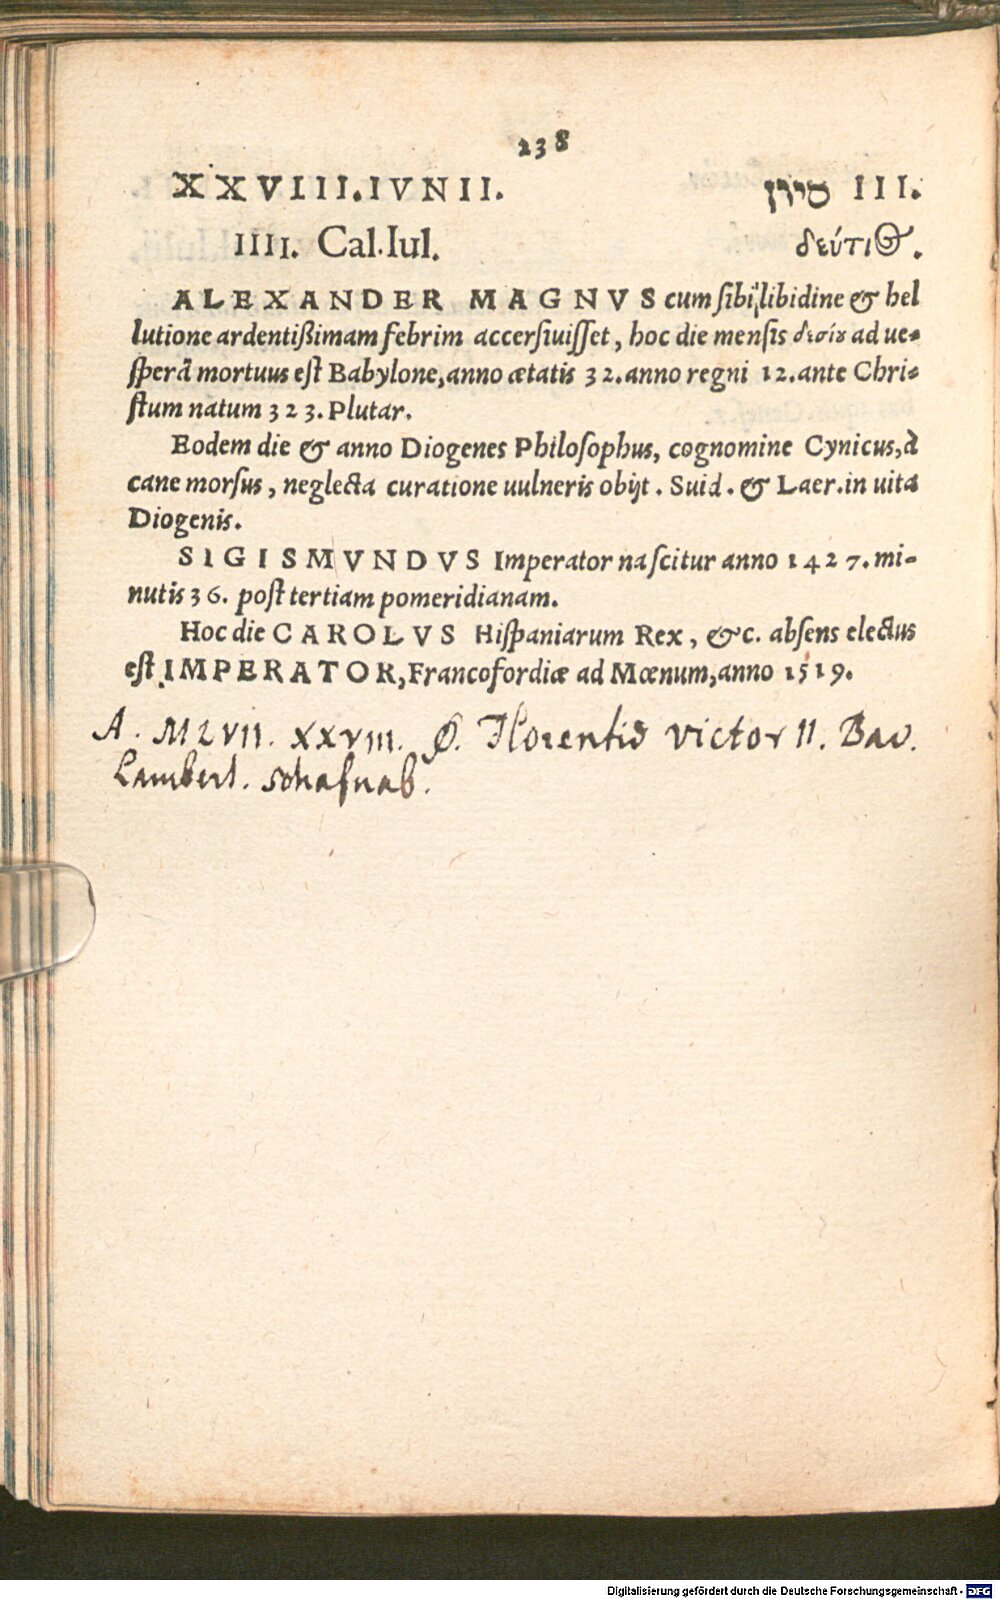 238
XXVIII.IVNII. סירן III.
IIII. Cal.Iul. δεύτιϑ.
ALEXANDER MAGNVS cum ſibi libidine & hel
lutione ardentißimam febrim accerſiuiſſet, hoc die menſis δεσίυ ad ue-
ſperā mortuus eſt Babylone, anno ætatis 32. anno regni 12. ante Chri-
ſtum natum 323. Plutar.
Eodem die & anno Diogenes Philoſophus, cognomine Cynicus, à
cane morſus, neglecta curatione uulneris obijt. Suid. & Laer. in uita
Diogenis.
SIGISMVNDVS Imperator naſcitur anno 1427. mi-
nutis 36. poſt tertiam pomeridianam.
Hoc die CAROLVS Hiſpaniarum Rex, &c. abſens electus
eſt IMPERATOR, Francofordiæ ad Mœnum, anno 1519.
A. MLVII. XXVIII. Ø. Florentiæ Victor II. Bav.
Lambert. Schafnab.
Digitalisierung gefördert durch die Deutsche Forschungsgemeinschaft - DFG